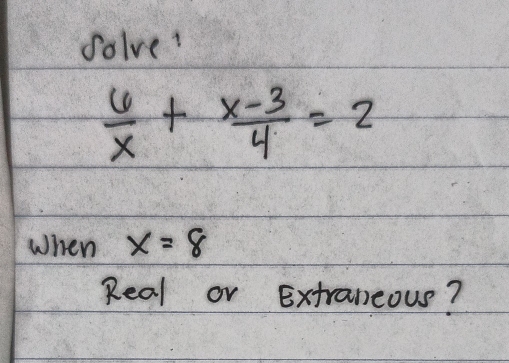 Solve:
6/x + x-3/4 = 2
When x = 8
Real or Extraneous?